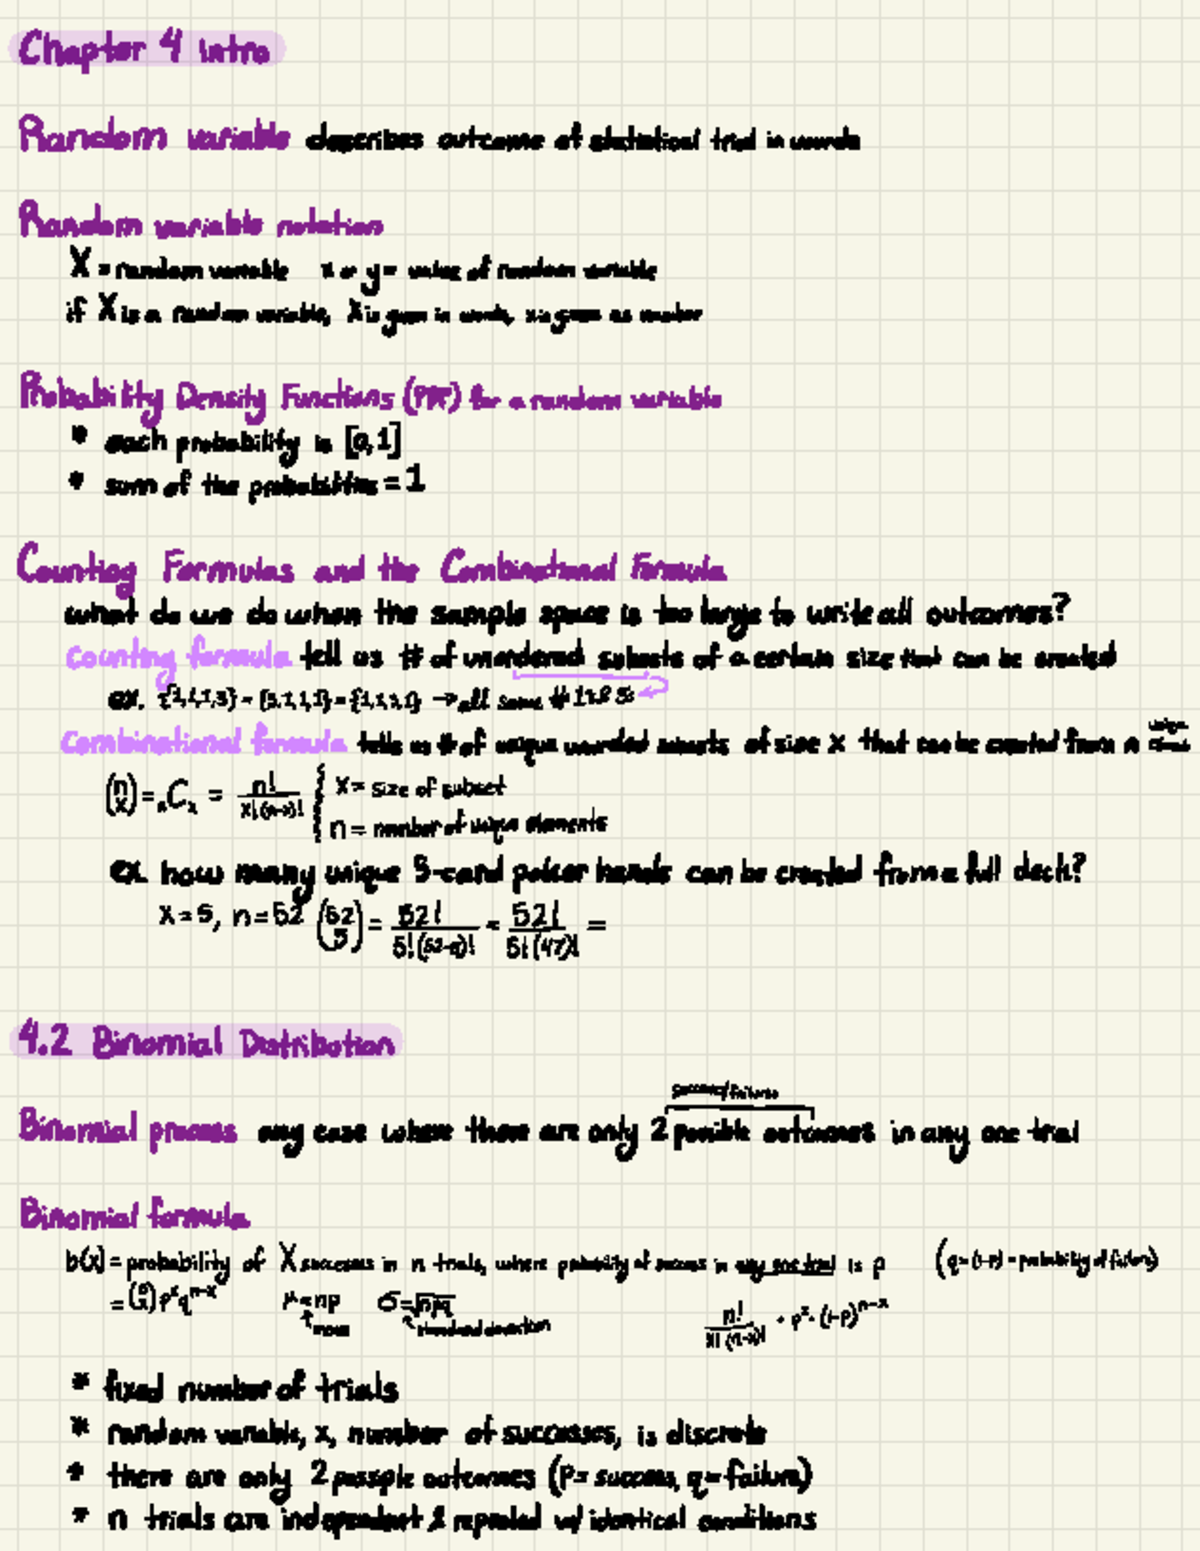 Chapter 4 Intro
Random variable describes outcome of statistical trial in words
Random variable notation
X = random variable x or y = value of random variable
if X is a random variable, X is given in words, x is given as number
Probability Density Functions (PDF) for a random variable
• each probability is [0,1]
• sum of the probabilities = 1
Counting Formulas and the Combinational Formula
what do we do when the sample space is too large to write all outcomes?
counting formula tell us # of unordered subsets of a certain size that can be created
ex. = = → all same #1's & 3's
combinational formula tells us # of unique unordered subsets of size x that can be created from n unique
(n x) = nCx = n!/x!(n-x)! x = size of subset
n = number of unique elements
ex. how many unique 5-card poker hands can be created from a full deck?
x = 5, n = 52 (52 5) = 52!/5!(52-5)! = 52!/5!(47)! =
4.2 Binomial Distribution
success/failure
Binomial process any case where there are only 2 possible outcomes in any one trial
Binomial formula
b(x) = probability of X successes in n trials, where probability of success in any one trial is p (q = (1-p) = probability of failure)
= (n x) p^x q^n-x μ = np σ = √npq n!/x!(n-x)! · p^x · (1-p)^n-x
mean standard deviation
* fixed number of trials
* random variable, x, number of successes, is discrete
* there are only 2 possple outcomes (p = success, q = failure)
* n trials are independent & repeated w/ identical conditions